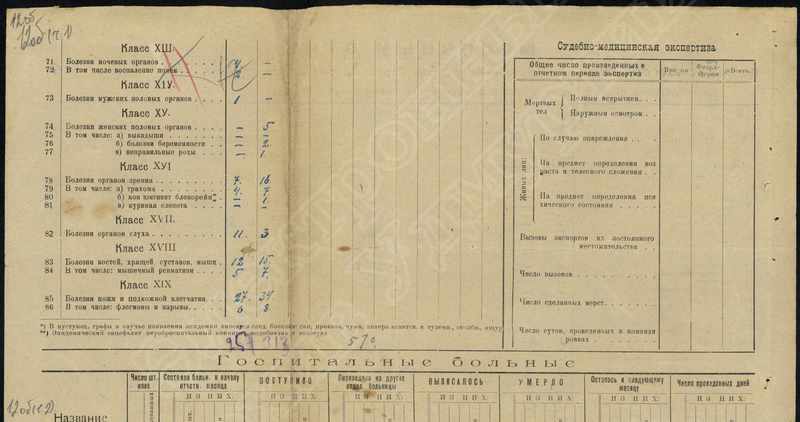 12об
12об(г.1)
Класс XIII
71 Болезни мочевых органов 4 —
72 В том числе воспаление почек 2 —
Класс XIУ
73 Болезни мужских половых органов 1 —
Класс XУ.
74 Болезни женских половых органов — 5
75 В том числе: а) выкидыши — —
76 б) болезни беременности — 2
77 в) неправильные роды — 1
Класс XУI
78 Болезни органов зрения 7. 16
79 В том числе: а) трахома 4. 7
80 б) кон'юнктивит бленорейн — 1.
81 в) куриная слепота — —
Класс XVII.
82 Болезни органов слуха 11 3
Класс XVIII
83 Болезни костей, хрящей, суставов, мышц 12 15
84 В том числе: мышечный ревматизм 5 7.
Класс XIX
85 Болезни кожи и подкожной клетчатки 27. 34
86 В том числе: флегмоны и нарывы 6 8
Судебно-медицинская экспертиза
Общее число произведенных в отчетном периоде экспертиз
Всего
Мертвых тел
Полным вскрытием
Наружным осмотром
Живых лиц:
По случаю повреждения
На предмет определения возраста и телесного сложения
На предмет определения психического состояния
Вызовы экспертов из постоянного местожительства
Число вызовов
Число сделанных верст
Число суток, проведенных в командировках
957 313 570
Госпитальные больные
Название
Число шт. коек
Состояло больн. к началу отчетн. месяца
ПОСТУПИЛО
Переведено из других отдел. больницы
ВЫПИСАЛОСЬ
УМЕРЛО
Осталось к следующему месяцу
Число проведенных дней
ИЗ НИХ:
ИЗ НИХ:
ИЗ НИХ:
ИЗ НИХ:
ИЗ НИХ:
ИЗ НИХ:
ИЗ НИХ:
12об(г.2)